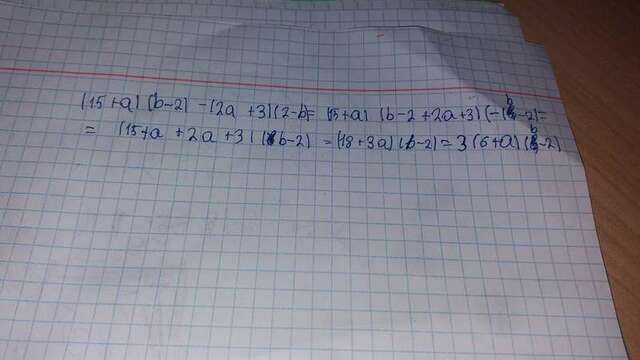 (15+a) (b-2) -(2a +3)(2-b)= (15+a) (b-2+2a+3) (-(b-2)=
= (15+a +2a+3) (b-2) =(18+3a) (b-2)= 3(6+a)(b-2)